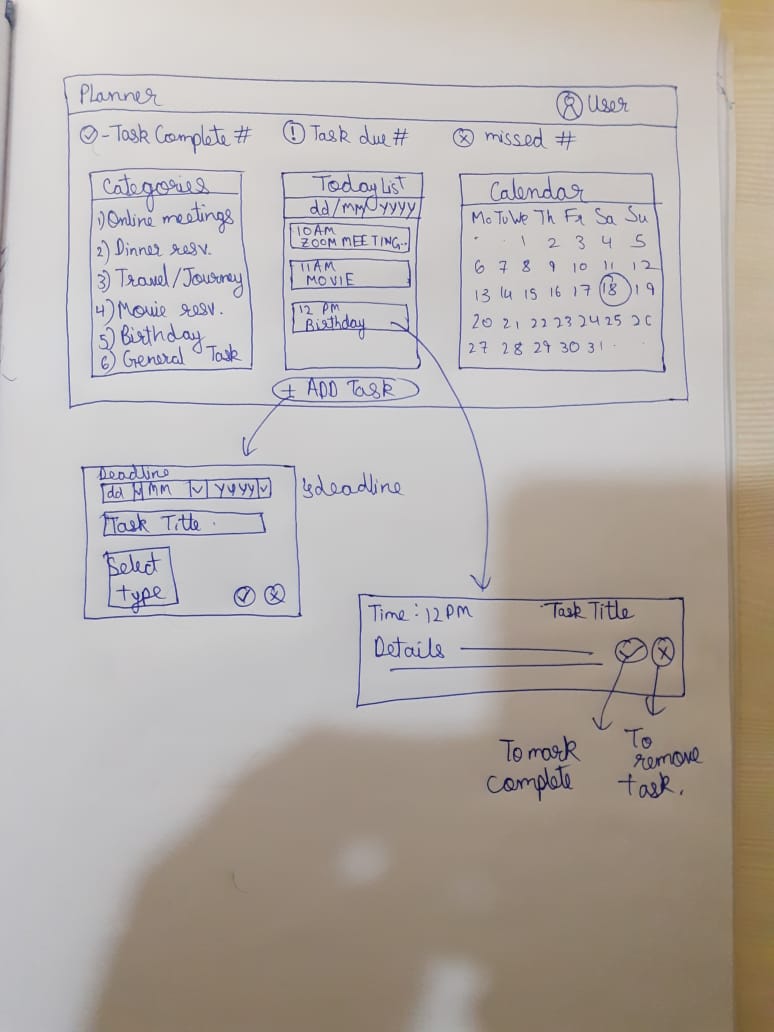 Planner
User
- Task Complete #
! Task due #
missed #
Categories
1) Online meetings
2) Dinner resv.
3) Travel/Journey
4) Movie resv.
5) Birthday
6) General Task
Today List
dd/MM/yyyy
10AM
ZOOM MEETING..
11AM
MOVIE
12 PM
Birthday
+ ADD Task
Calendar
Mo Tu We Th Fr Sa Su
1 2 3 4 5
6 7 8 9 10 11 12
13 14 15 16 17 18 19
20 21 22 23 24 25 26
27 28 29 30 31
Deadline
dd MM yyyy
Task Title
Select
type
deadline
Time: 12PM
Task Title
Details
To mark
complete
To
remove
task.